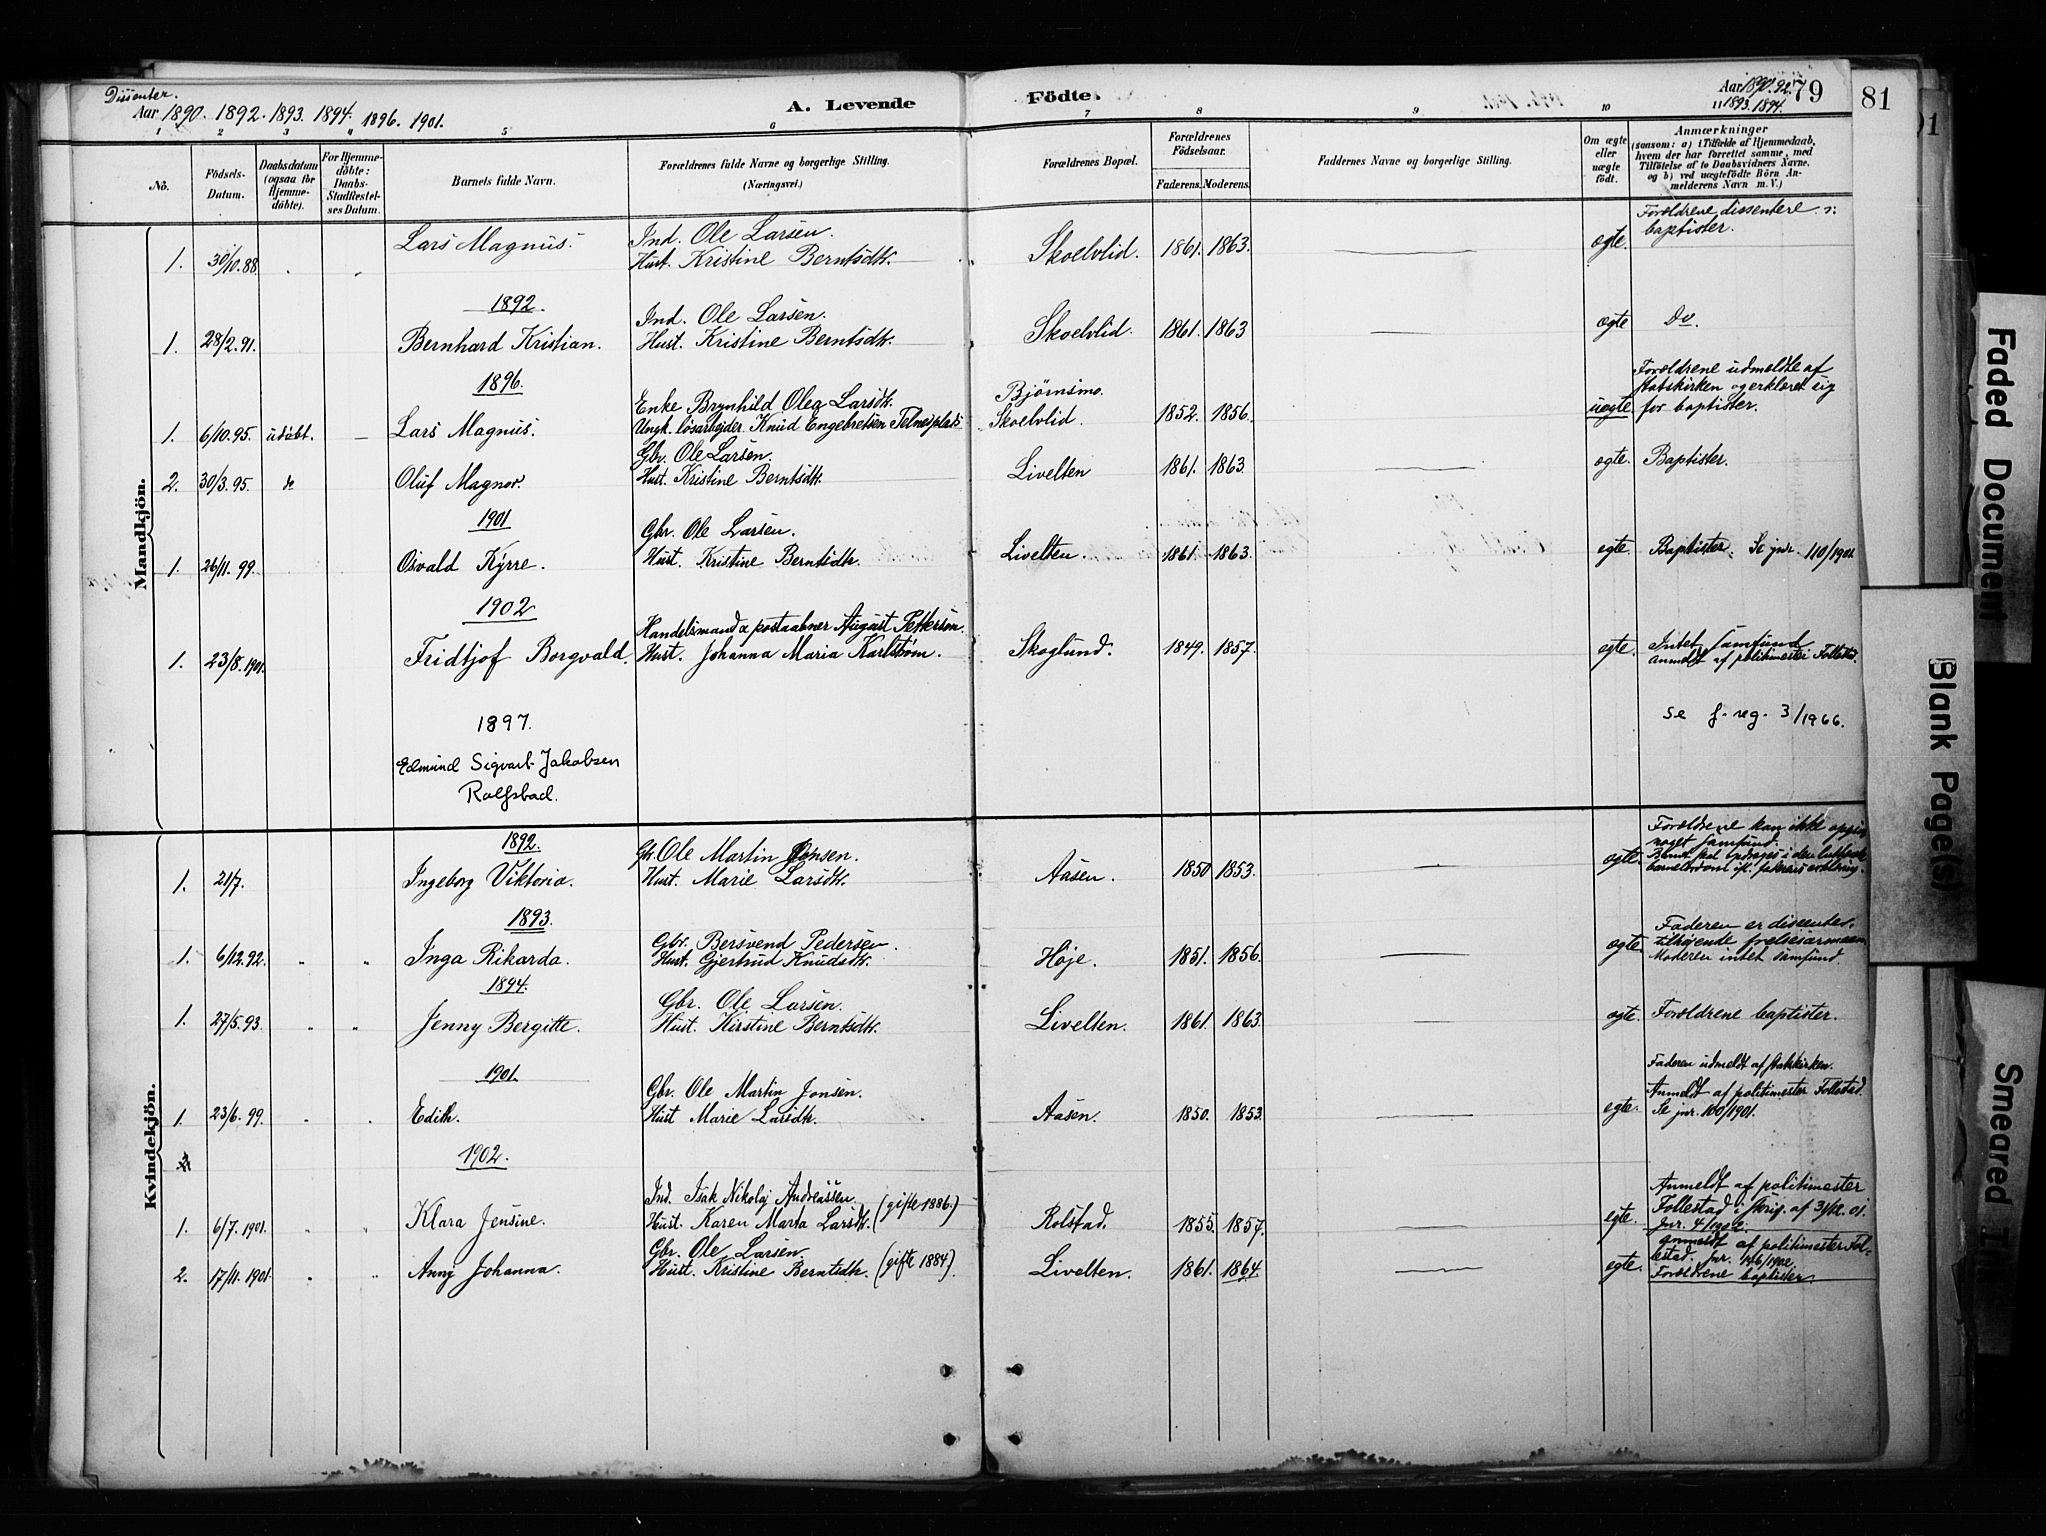 Dissenter.
Aar 1890. 1892. 1893. 1894. 1896. 1901.
A. Levende Födte.
Aar 1890. 92.
1893. 1894.
79
81
1 2 3 4 5 6 7 8 9 10 11
No.
Födsels-Datum.
Daabsdatum (ogsaa for Hjemme-döbte).
For Hjemme-döbte: Daabs-Stadfestel-ses Datum.
Barnets fulde Navn.
Forældrenes fulde Navne og borgerlige Stilling.
(Næringsvei.)
Forældrenes Bopæl.
Forældrenes Födselsaar.
Faderens. Moderens.
Faddernes Navne og borgerlige Stilling.
Om ægte eller uægte födt.
Anmærkninger
(saasom: a) i Tilfælde af Hjemmedaab, hvem der har forrettet samme, med Tilföielse af to Daabsvidners Navne, og b) ved uægtefödte Börn Anmelderens Navn m. V.)
Mandkjön.
1. 30/10.88. Lars Magnus. Ind. Ole Larsen. Hust. Kristine Berntsdtr. Skoelvlid. 1861. 1863. ægte. Forældrene dissentere baptister.
1892.
1. 28/2.91. Bernhard Kristian. Ind. Ole Larsen. Hust. Kristine Berntsdtr. Skoelvlid. 1861. 1863 ægte Do.
1896.
1. 6/10.95. udöbt. Lars Magnus. Enke Brynhild Olea Larsdtr. Ungk. løsarbejder Knud Engebretsen Bjørnsmo. Skoelvlid. 1852. 1856. uægte Forældrene udmeldte af statskirken og erklæret sig for baptister.
2. 30/3.95. do Oluf Magnor. Gbr. Ole Larsen. Hust. Kristine Berntsdtr. Livelten 1861. 1863. ægte. Baptister.
1901
1. 26/11.99. Osvald Kyrre. Gbr. Ole Larsen. Hust. Kristine Berntsdtr. Livelten. 1861. 1863. egte. Baptister. Se jnr. 110/1901
1902
1. 23/8.1901. Fridtjof Borgvald. Handelsmand & postaabner August Pettersen. Hust. Johanna Maria Karlstrøm. Skoglund. 1849. 1857. egte. Intet samfund anmeldt af politimester Follestad.
1897.
Edmund Sigvart Jakobsen
Rolfsbad.
se f. reg. 3/1966.
Kvindekjön.
1892.
1. 21/7. Ingeborg Viktoria. Gbr. Ole Martin Jonsen. Hust. Marie Larsdtr. Aasen. 1850 1853. ægte. Forældrene kan ikke opgive noget samfund.
1893.
1. 6/12.92. " " Inga Rikarda. Gbr. Bersvend Pedersen. Hust. Gjertrud Knudsdtr. Høje. 1851. 1856. ægte. Faderen er dissenter, tilhørende frelsesarmeen Moderen intet samfund.
1894.
1. 27/5.93. " " Jenny Bergitte. Gbr. Ole Larsen. Hust. Kirstine Berntsdtr. Livelten. 1861. 1863. ægte. Forældrene baptister.
1901.
1. 23/6.99. " " Edith. Gbr. Ole Martin Jonsen. Hust Marie Larsdtr. Aasen. 1850. 1853. egte. Faderen udmeldt af statskirken. Anmeldt af politimester Follestad. Se jnr. 100/1901.
1902.
1. 6/7.1901. " " Klara Jensine. Ind. Isak Nikolaj Andreassen. Hust. Karen Marta Larsdtr. (gifte 1886.) Rolstad. 1855. 1857. egte. Anmeldt af politimester Follestad i skriv. af 31/12.01. Jnr. 4/1902.
2. 17/11.1901. " " Anny Johanna. Gbr. Ole Larsen. Hust. Kristine Berntsdtr. (gifte 1884). Livelten. 1861. 1864. egte. Anmeldt af politimester Follestad. Jnr. 146/1902. Forældrene baptister.
Faded Document
Blank Page(s)
Smeared Ink